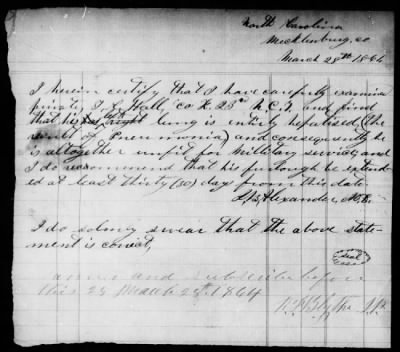 North Carolina
Mecklenburg, co
March 28th 1864
I herein certify that I have carefully examined
private J. L. Hall, co K. 23d N.C.T. and find
that his left lung is entirly hepatised (the
result of Pneumonia) and consequently he
is altogether unfit for military service and
I do recommend that his furlough be extend-
ed at least thirty (30) days from this date.
Alexander, M.D.
I do solmy swear that the above state-
ment is correct,
seal
and subscribe before
this 28 March 28th 1864
Blythe J.P.